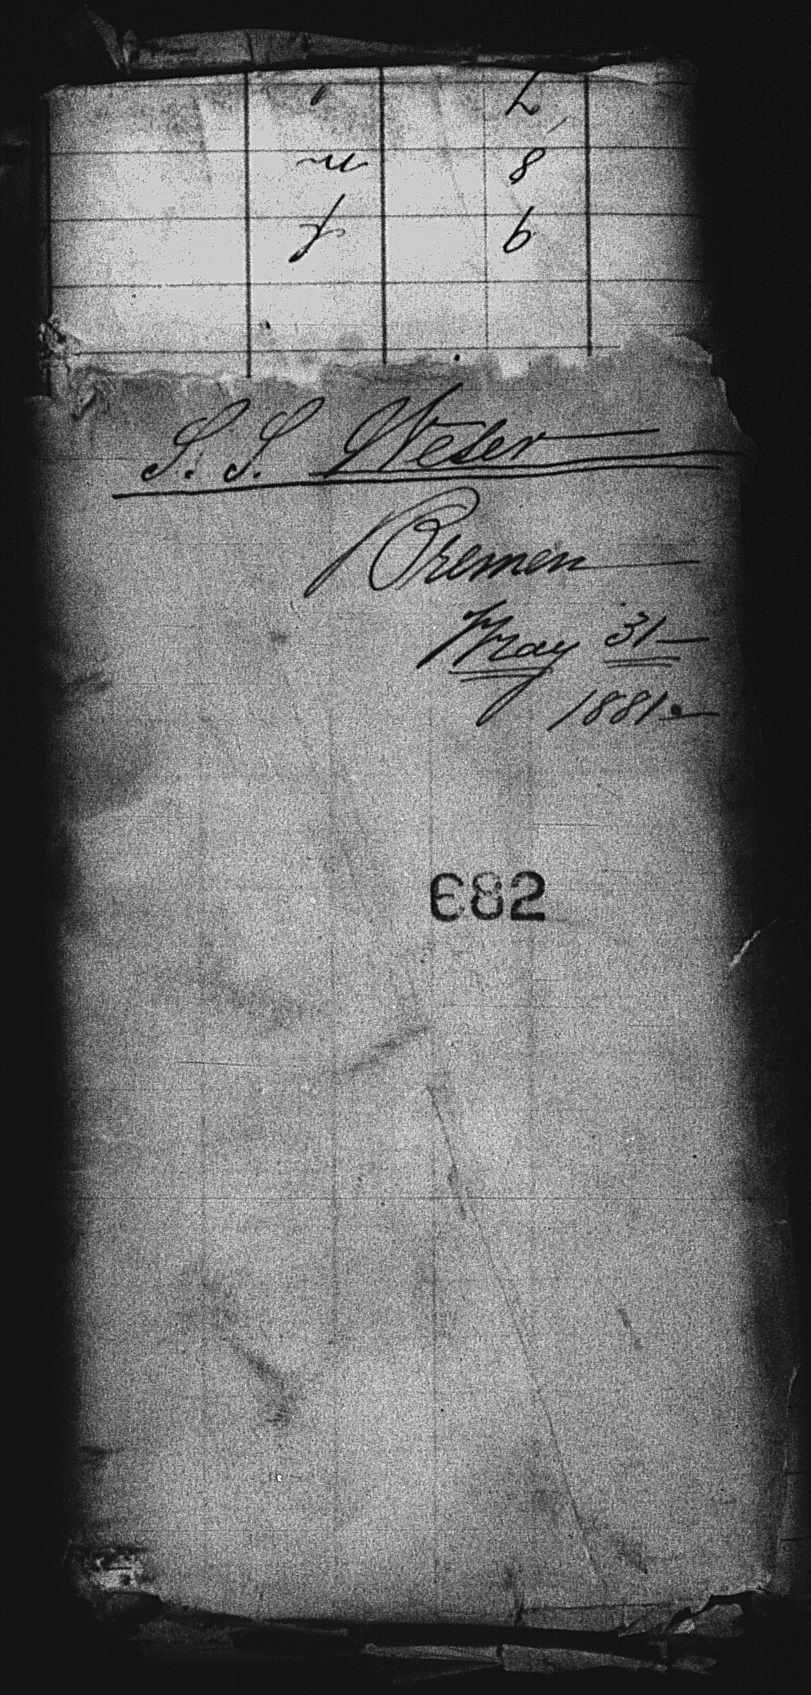 S. S. Weser
Bremen
May 31
1881.
682